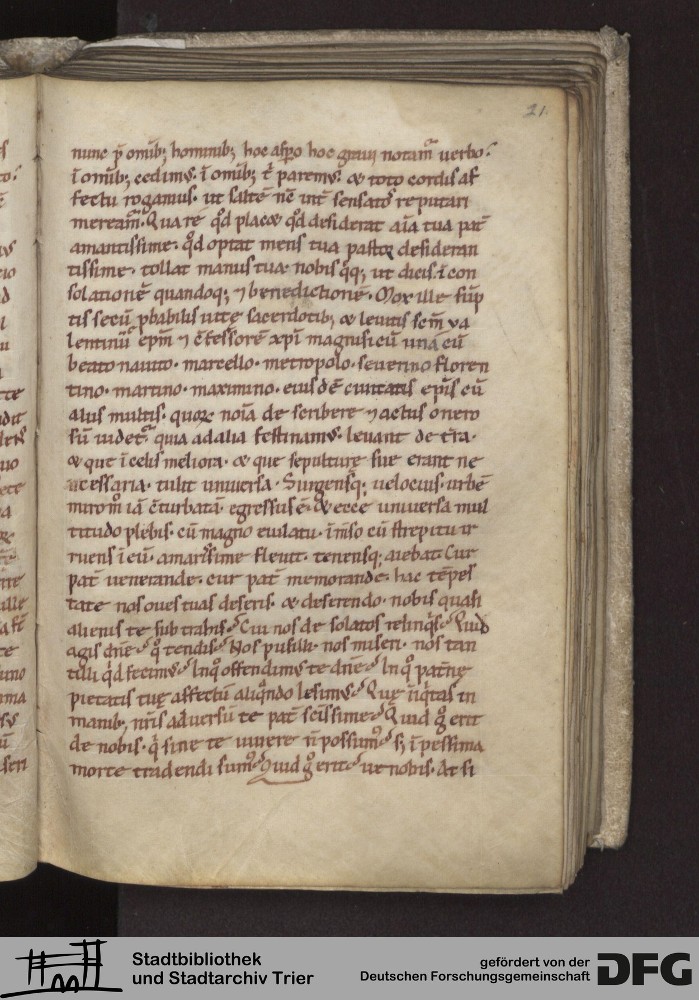 21.
nunc p̄ omīb; hominib; hoc aspo hoc graui notam̄ uerbo.
ī omīb; cedimꝰ. ī omīb; t̄ paremꝰ. & toto cordis af
fectu rogamus. ut saltē nc̄ int̄ sensatos reputari
meream̄. Quare qd̄ placet qd̄ desiderat aīa tua pat̄
amantissime. qd̄ optat mens tua pastor desideran
tissime. tollat manus tua. nobis qq; ut dicis. ī con
solationē quandoq; ⁊ benedictionē. Mox ille sūp
tis secū pbabilis uitę sacerdotib; & leuitis scm̄ va
lentinū epm̄ ⁊ c̄fessorē xpī magnificū unā cū
beato nauito. marcello. metropolo. seuerino floren
tino. martino. maximino. eiusdē ciuitatis epīs cū
aliis multis. quoꝝ noīa de scribere ⁊ actus onero
sū uidet̄. quia ad alia festinamꝰ. leuant de t̄ra.
& que ī celis meliora. & que sepulturę sue erant ne
cessaria. tulit uniuersa. Surgensq; uelocius. urbē
miro mō iā c̄turbatā egressus ē. & ecce uniuersa mul
titudo plebis. cū magno eiulatu. īmīso cū strepitu ir
ruens ī eū. amarissime fleuit. tenensq; aiebat. Cur
pat̄ uenerande. cur pat̄ memorande. hac tēpes
tate nos oues tuas deseris. & deserendo. nobis quasi
alienis te subtrahis. Cui nos de solatos relinqis. Quid
agis dn̄e. qͦ tendis. Nos pusilli. nos miseri. nos tan
tilli qid fecimꝰ. In qͦ offendimꝰ te dn̄e. In qͦ patn̄ę
pietatis tuę affectū aliqndo lesimꝰ. Quę iniq̄tas in
manib; nr̄is aduersū te pat̄ scīssime. Quid gͦ erit
de nobis. qͥ sine te uiuere n̄ possumꝰ. s; ī pessima
morte tradendi sumꝰ. Quid gͦ erit. ue nobis. At si
Stadtbibliothek
und Stadtarchiv Trier
gefördert von der
Deutschen Forschungsgemeinschaft
DFG